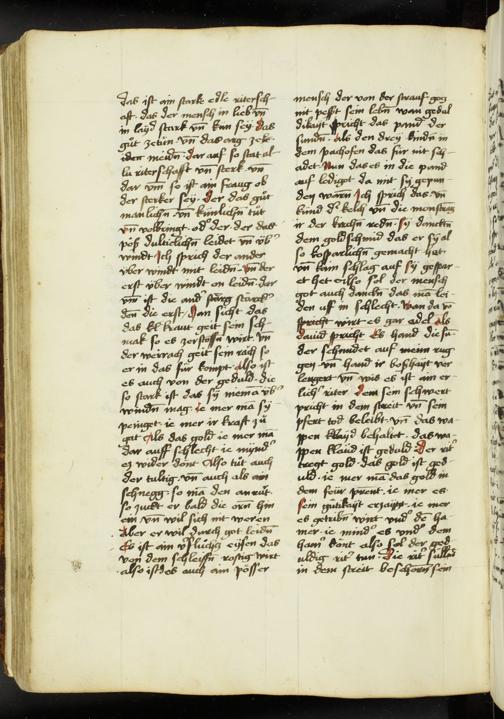 das ist ain starke edle ritersch-
aft. das der mensch in lieb vn̄
in layd stark vn̄ kün sey. das
gůt zetůn vn̄ das arg ze
meiden. dar auf so stat al
lü riterschafft vn̄ sterk vn̄
dar vm so ist ain fraug ob
der sterker sey. der das gůt
manlichn̄ vn̄ künlichn̄ tůt
vn̄ volbringt. od der der das
pöß dultiklichn̄ leidet vn̄ vb
windt Ich sprich der ander
vber windt mit leidn̄. vn̄ der
erst vber windt on leidn̄. dar
vm ist die and sterck
den̄ die erst. Man sicht das
das kraut geit sein sch-
mak so es zerstossn̄ wirt vn̄
der weirach geit sein rach so
er in das für kompt. also ist
es auch von der geduld. die
so stark ist das sy niema vb
winden mag. ie mer ma sy
peinget ie mer ir kraft zů
gat Als das gold ie mer ma
dar auff schlecht ie
es wider dont Also tůt auch
der tultig. vn̄ auch als ain
schnegg. so ma den an růrt.
so zuckt er bald die orn hin
ein vn̄ wil sich nit weren
Aber er wil durch got leidn̄
Es ist ain eysen das
von dem schleiffn̄ rostig wirt
also ist es auch ain pösser
mensch der von der strauf gotz
nit pessert sein lebn̄ wan gedul
dikait spricht das pand der
sündn̄. Als den drey kindn̄ in
dem pachofen das für nit sch-
adet Nun das es in die pand
auf lediget da mit sy gepun-
den warn Ich sprich das vn̄
künd d kelch vn̄ die monstrantz
in der kirchn̄ redn̄. sy dancktn̄
dem goldschmid das er sy al
so kosparlichn̄ gemacht het.
vn̄ kain schlag auf sy gespar-
et het also sol der mensch
got auch danckn̄ das ma lei-
den auf in schlecht. wan da vō
spricht wirt es gar edel als
dauid spricht Es hand die sü
der schmidet auf meinn rug
gen vn̄ hand ir boßhayt ver
lengert vn̄ wie es ist ain er
lich riter. dem sein schwert
pricht in dem streit vn̄ sein
pfert tod beleibt. vn̄ das wa-
ppen klayd behaltet. das wa-
ppen klaid ist geduld. Der rit
tregt gold. das gold ist ged-
uld. ie mer ma das gold in
dem feür prent. ie mer es
sein gütkait erzaigt. ie mer
es getribn̄ wirt vnd de ha
mer ie mind es vnd dem
ham tönt also sol der ged
uldig rit tun. Die rit süllnd
in dem streit beschorn sein